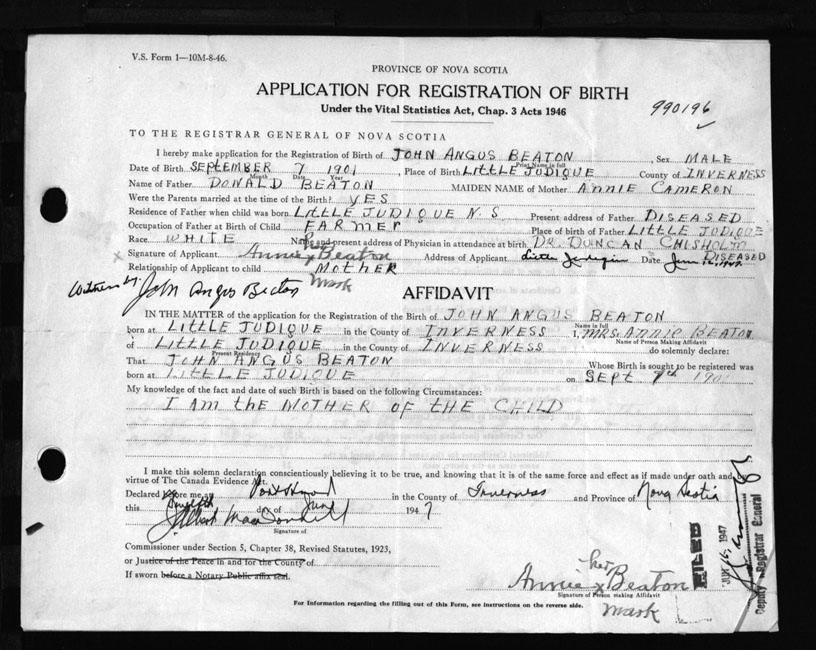 V.S. Form 1—10M-8-46.
PROVINCE OF NOVA SCOTIA
APPLICATION FOR REGISTRATION OF BIRTH
Under the Vital Statistics Act, Chap. 3 Acts 1946
990196
TO THE REGISTRAR GENERAL OF NOVA SCOTIA
I hereby make application for the Registration of Birth of JOHN ANGUS BEATON, Sex MALE
Print Name in full
Date of Birth SEPTEMBER 7 1901, Place of Birth LITTLE JUDIQUE County of INVERNESS
Month Date Year
Name of Father DONALD BEATON MAIDEN NAME of Mother ANNIE CAMERON
Were the Parents married at the time of the Birth? YES
Residence of Father when child was born LITTLE JUDIQUE N.S Present address of Father DISEASED
Occupation of Father at Birth of Child FARMER Place of birth of Father LITTLE JUDIQUE
Race WHITE Name and present address of Physician in attendance at birth DR. DUNCAN CHISHOLM
DISEASED
x Signature of Applicant Annie her x Beaton mark Address of Applicant Little Judique Date
Relationship of Applicant to child MOTHER
Witness by John Angus Beaton
AFFIDAVIT
IN THE MATTER of the application for the Registration of the Birth of JOHN ANGUS BEATON
Name in full
born at LITTLE JUDIQUE in the County of INVERNESS I, MRS. ANNIE BEATON
Name of Person Making Affidavit
of LITTLE JUDIQUE in the County of INVERNESS do solemnly declare:
Present Residency
That JOHN ANGUS BEATON Whose Birth is sought to be registered was
born at LITTLE JUDIQUE on SEPT 7th 190
My knowledge of the fact and date of such Birth is based on the following Circumstances:
I AM the MOTHER OF the CHILD
I make this solemn declaration conscientiously believing it to be true, and knowing that it is of the same force and effect as if made under oath and by
virtue of The Canada Evidence Act.
Declared before me at Port Hood in the County of Inverness and Province of Nova Scotia
this Twelfth day of June 1947
Signature of
Commissioner under Section 5, Chapter 38, Revised Statutes, 1923,
or Justice of the Peace in and for the County of
If sworn before a Notary Public affix seal.
Annie her x Beaton mark
Signature of Person making Affidavit
For Information regarding the filling out of this Form, see instructions on the reverse side.
FILED
JUN 16, 1947
Deputy Registrar General